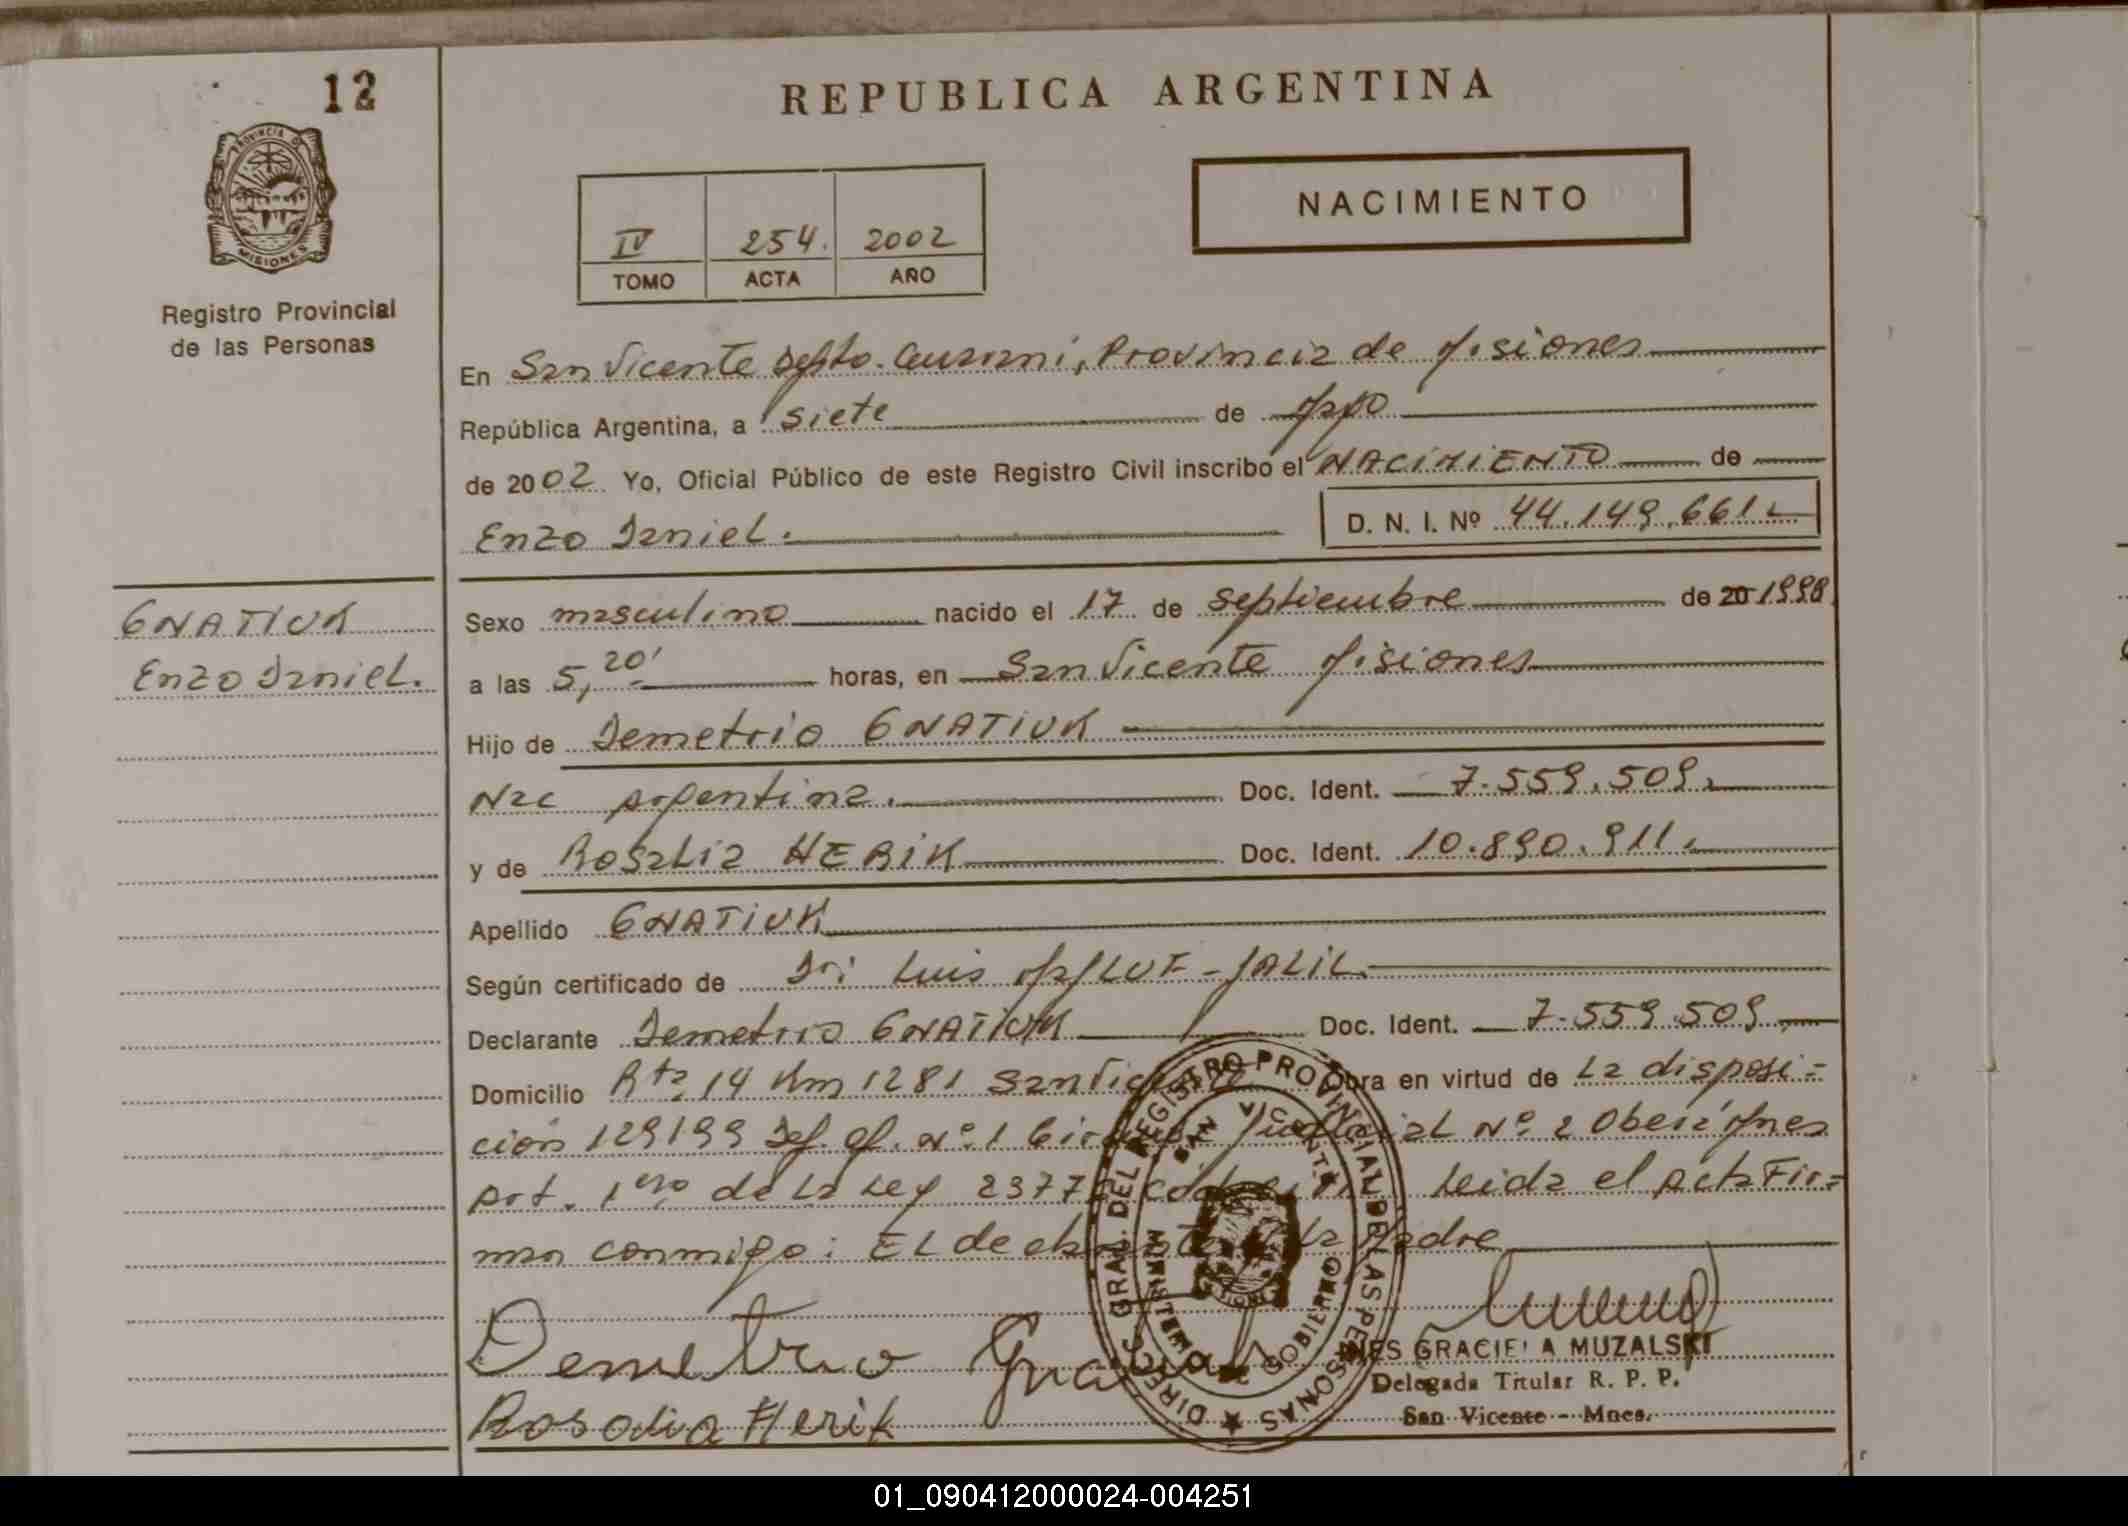 12
REPUBLICA ARGENTINA
PROVINCIA D
MISIONES
Registro Provincial
de las Personas
NACIMIENTO
IV 254. 2002
TOMO ACTA AÑO
En San Vicente Depto. Guarani, Provincia de Misiones
República Argentina, a siete de Mayo
de 2002 Yo, Oficial Público de este Registro Civil inscribo el NACIMIENTO de
Enzo Daniel. D. N. I. Nº 44.149.661
GNATIUK
Enzo Daniel.
Sexo masculino nacido el 17 de septiembre de 20 1998
a las 5,20' horas, en San Vicente Misiones
Hijo de Demetrio GNATIUK
Nac Argentina. Doc. Ident. 7.559.509
y de Rosalia HERIK Doc. Ident. 10.890.911
Apellido GNATIUK
Según certificado de Dr: Luis JALIL
Declarante Demetrio GNATIUK Doc. Ident. 7.559.509
Domicilio Rta 14 Km 1281 San Vicente Obra en virtud de La disposi=
ción 129199 Def. Of. Nº 1 Judicial Nº 2 Obera Mnes
Art. 1ero de La Ley Leida el Acta Fir=
man conmigo: EL declarante La Madre
Demetrio Gnatiuk
Rosalia Herik
INES GRACIELA MUZALSKI
Delegada Titular R. P. P.
San Vicente - Mnes.
DIREC. GRAL. DEL REGISTRO PROVINCIAL DE LAS PERSONAS
SAN VICENTE
MINISTERIO GOBIERNO
01_090412000024-004251